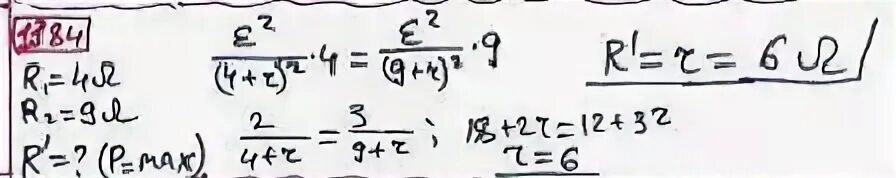 1384
R₁=4Ω
R₂=9Ω
R'=? (P=max)
ε²/(4+r)²·4 = ε²/(9+r)²·9
2/4+r = 3/9+r ; 18+2r=12+3r
r=6
R'=r=6Ω